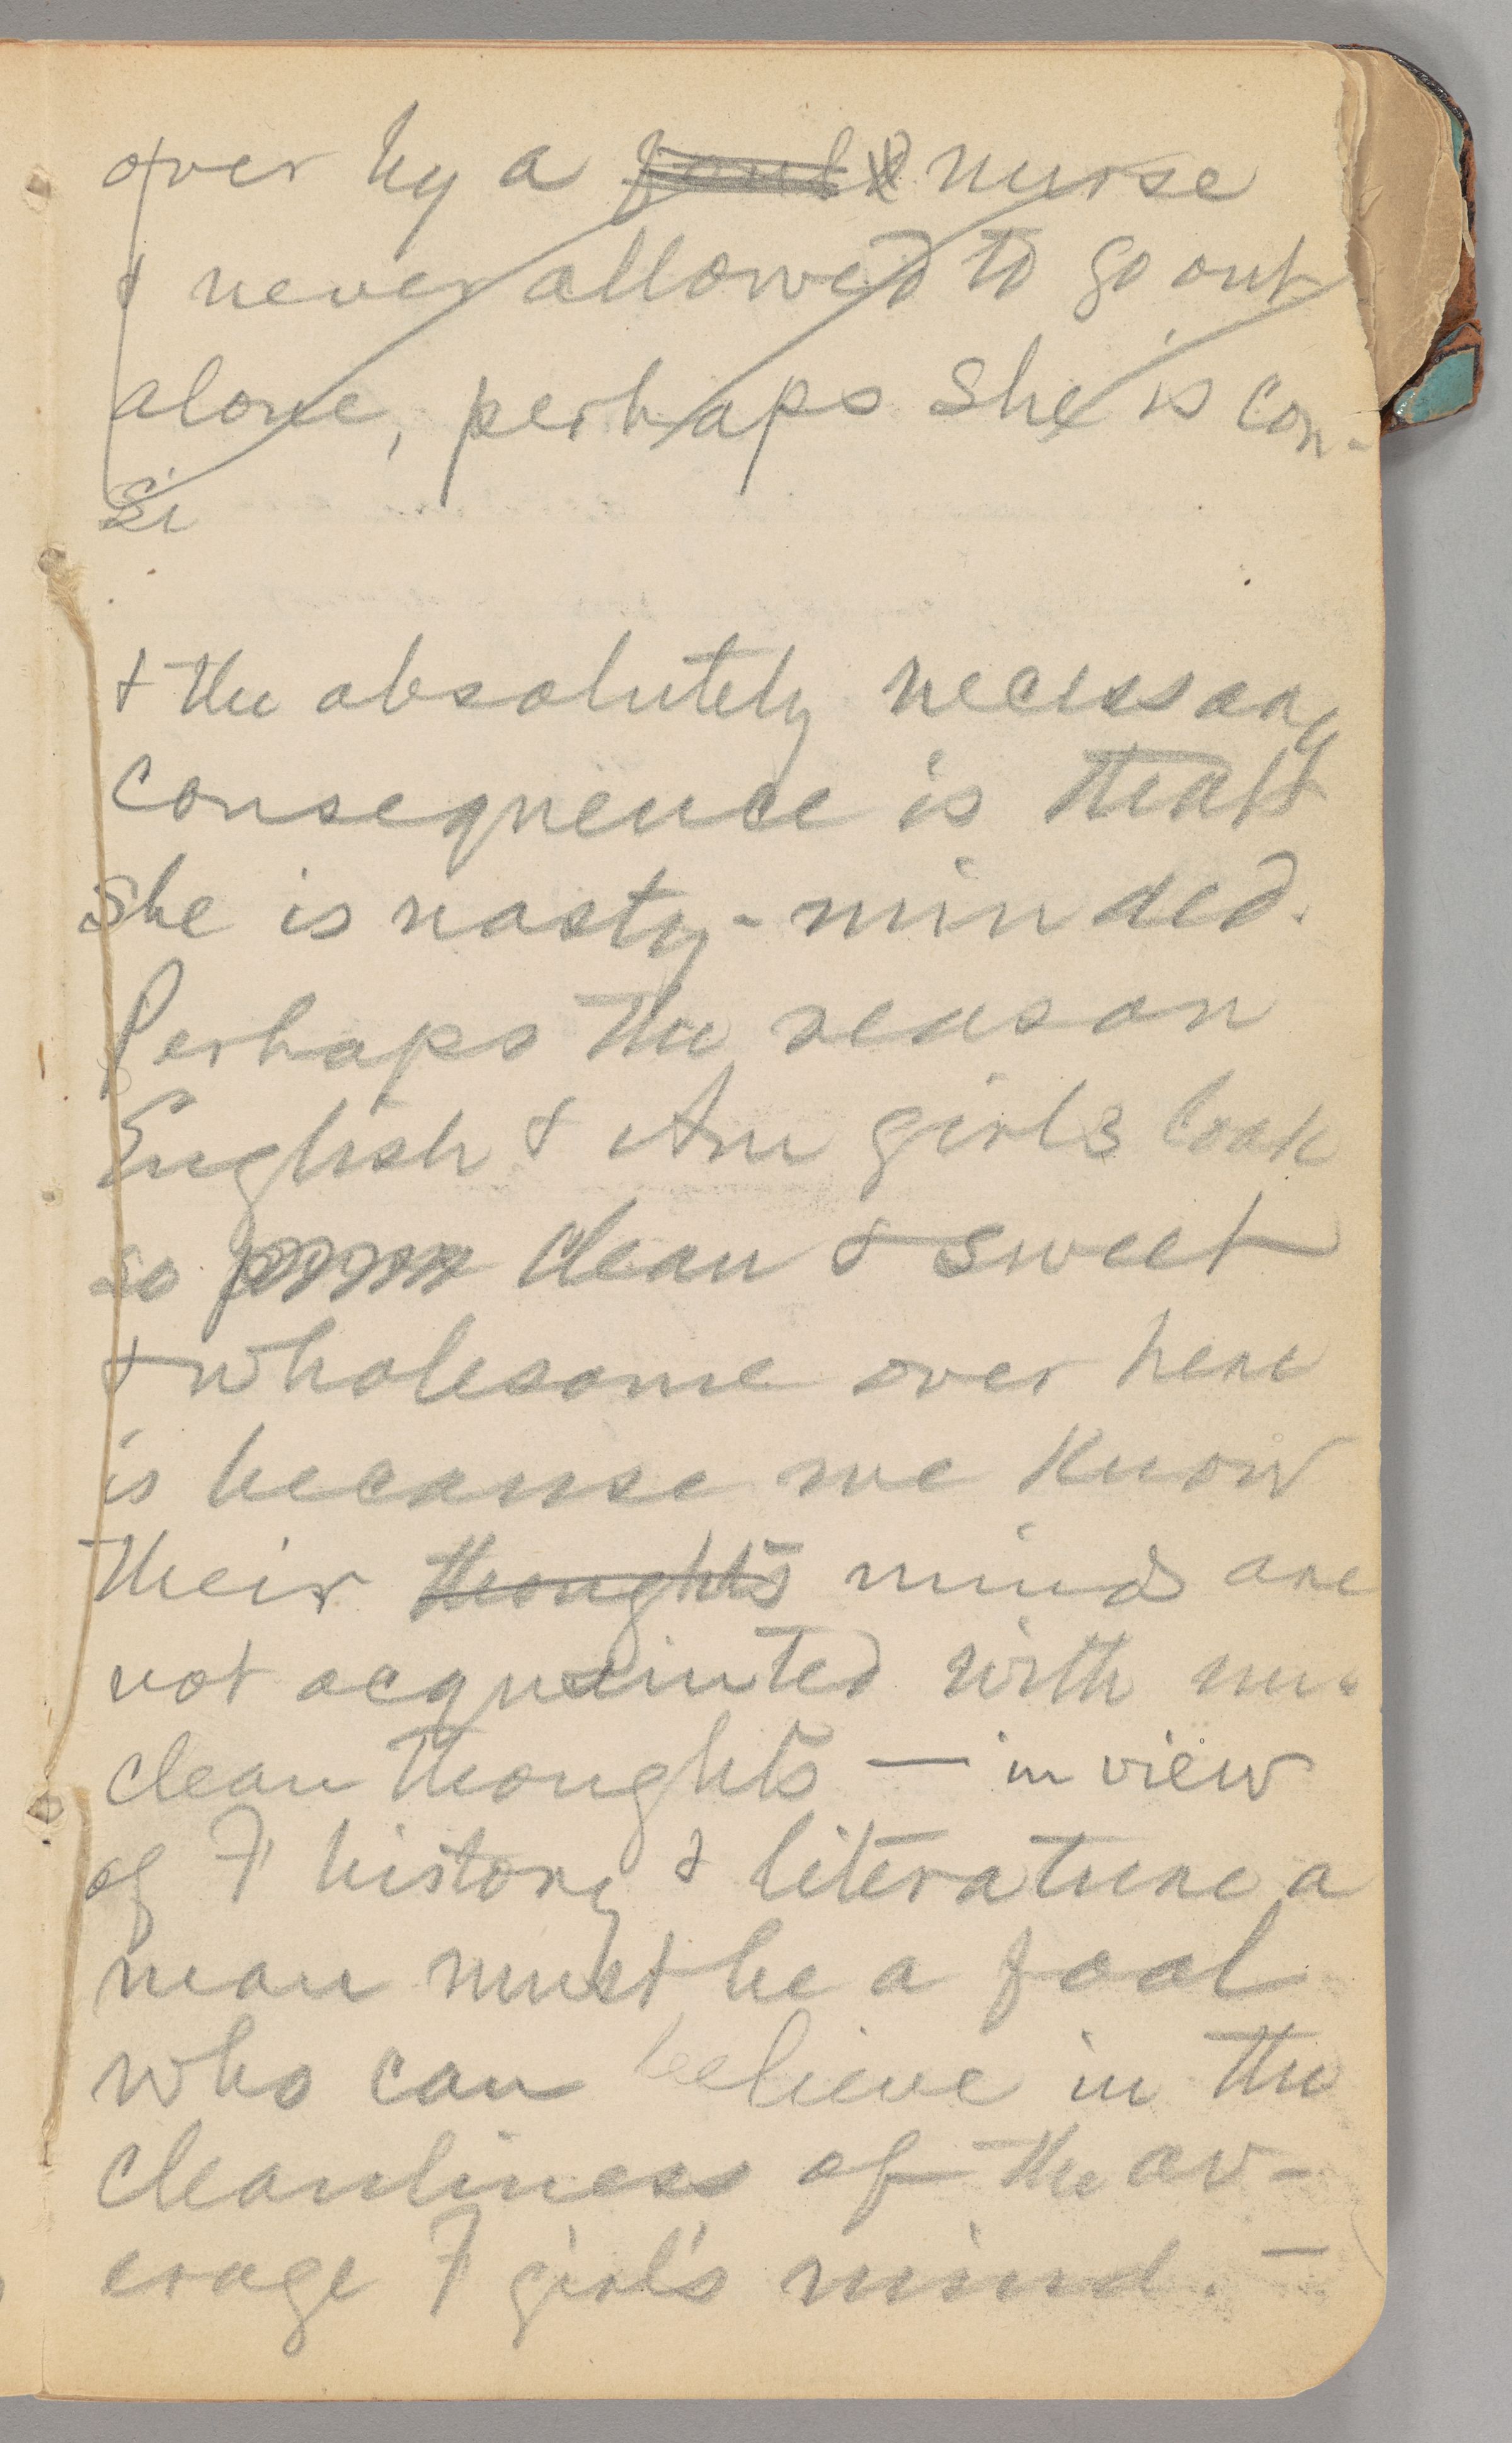 over by a nurse
& never allowed to go out
alone, perhaps she is con-
si
& the absolutely necessary
consequence is that
she is nasty-minded.
Perhaps the reason
English & Am girls look
so clean & sweet
& wholesome over here
is because we know
their thoughts minds are
not acquainted with un-
clean thoughts — in view
of F history & literature a
man must be a fool
who can believe in the
cleanliness of the av-
erage F girl's mind. —